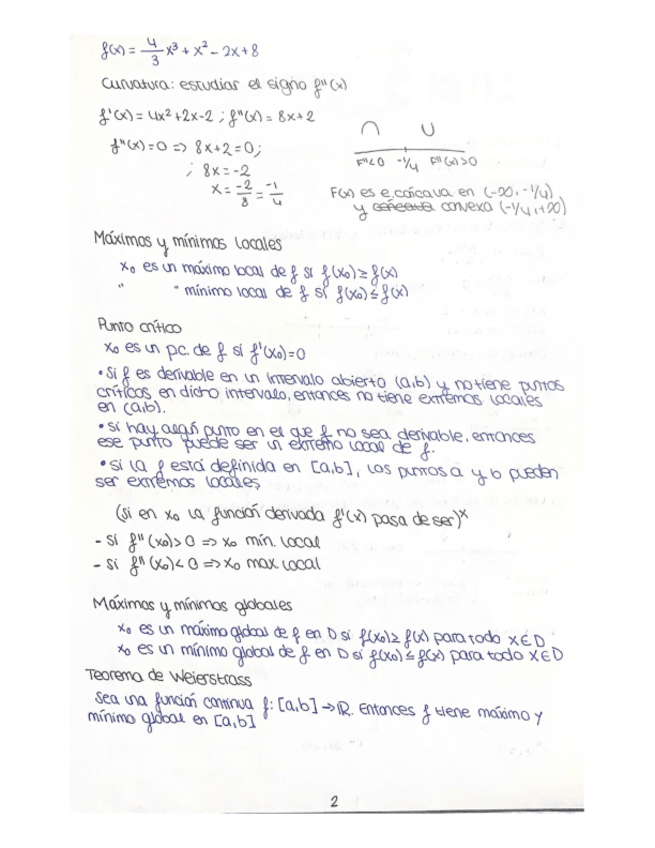 f(x) = 4/3 x³ + x² - 2x + 8
Curvatura: estudiar el signo f''(x)
f'(x) = 4x² + 2x - 2 ; f''(x) = 8x + 2
f''(x) = 0 => 8x + 2 = 0;
; 8x = -2
x = -2/8 = -1/4
∩ ∪
F''<0 -1/4 F''(x)>0
F(x) es e.cóncava en (-∞, -1/4)
y convexa (-1/4, +∞)
Máximos y mínimos locales
x₀ es un máximo local de f si f(x₀) ≥ f(x)
" " mínimo local de f si f(x₀) ≤ f(x)
Punto crítico
x₀ es un p.c. de f si f'(x₀)=0
• Si f es derivable en un intervalo abierto (a,b) y no tiene puntos
críticos en dicho intervalo, entonces no tiene extremos locales
en (a,b).
• Si hay algún punto en el que f no sea derivable, entonces
ese punto puede ser un extremo local de f.
• Si la f está definida en [a,b], los puntos a y b pueden
ser extremos locales
(si en x₀ la función derivada f'(x) pasa de ser)*
- Si f''(x₀) > 0 => x₀ mín. local
- Si f''(x₀) < 0 => x₀ max local
Máximos y mínimos globales
x₀ es un máximo global de f en D si f(x₀) ≥ f(x) para todo x∈D
x₀ es un mínimo global de f en D si f(x₀) ≤ f(x) para todo x∈D
Teorema de Weierstrass
Sea una función continua f: [a,b] → ℝ. Entonces f tiene máximo y
mínimo global en [a,b]
2